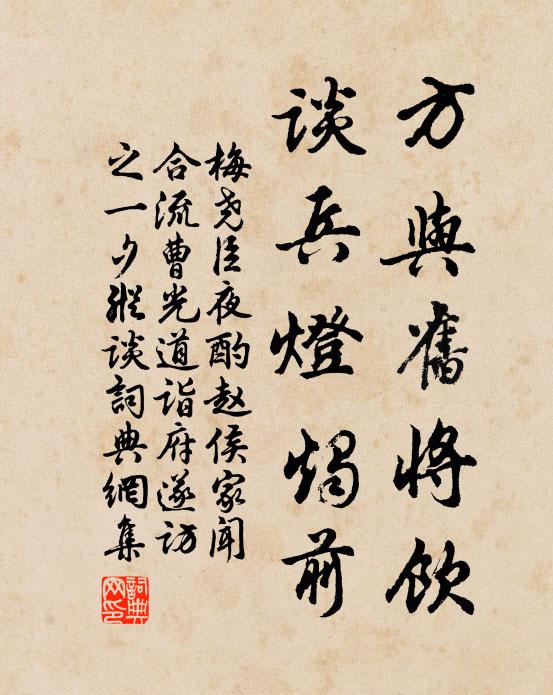 方與舊將飲
談兵燈燭前
梅尧臣夜酌赵侯家闻
合流曹光道诣府遂访
之一夕縱谈詞典網集
詞典網印